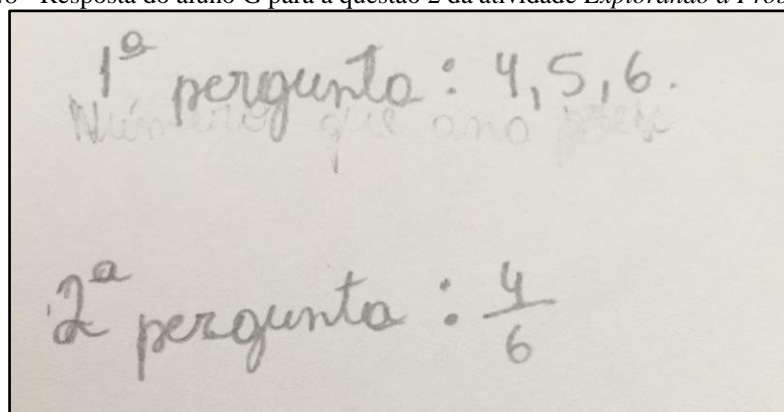 Resposta do aluno G para a questão 2 da atividade Explorando a
1ª pergunta: 4, 5, 6.
Número que ana
2ª pergunta: 4/6